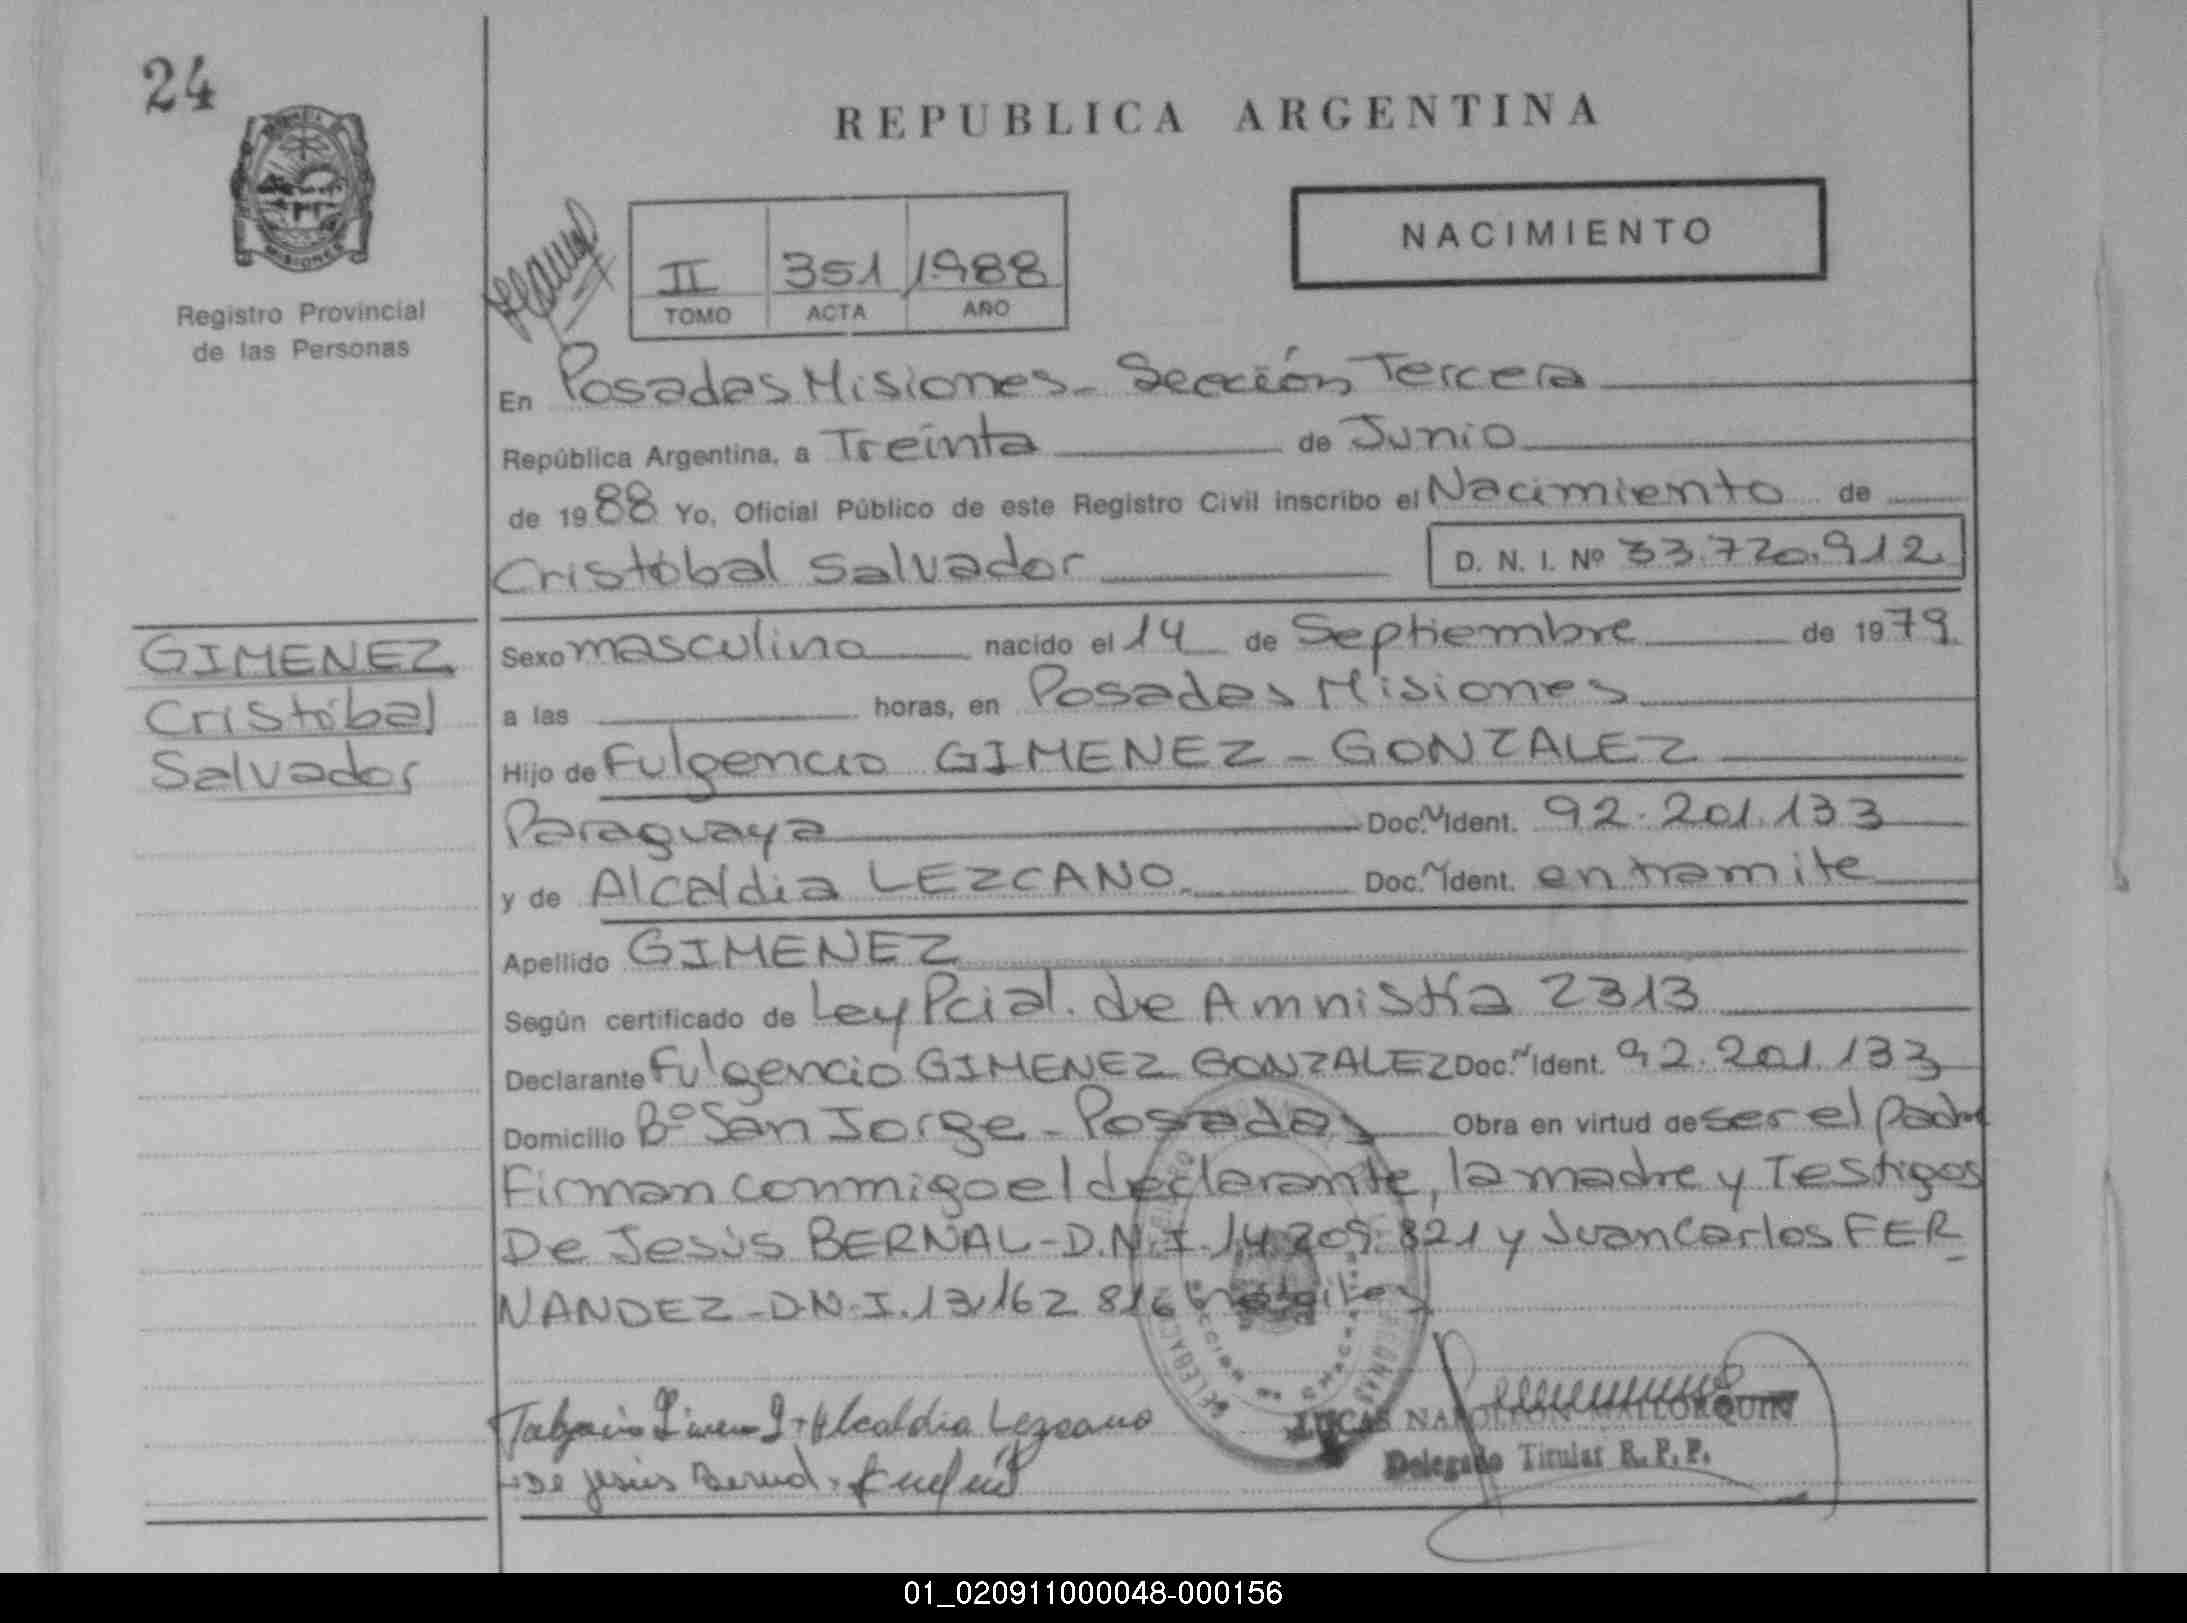 24
REPUBLICA ARGENTINA
NACIMIENTO
II 351 1988
TOMO ACTA AÑO
MISIONES
Registro Provincial
de las Personas
En Posadas Misiones - Sección Tercera
República Argentina, a Treinta de Junio
de 1988 Yo, Oficial Público de este Registro Civil inscribo el Nacimiento de
Cristóbal Salvador D. N. I. Nº 33.720.912.
GIMENEZ
Cristóbal
Salvador
Sexo masculino nacido el 14 de Septiembre de 1979.
a las horas, en Posadas Misiones
Hijo de Fulgencio GIMENEZ - GONZALEZ
Paraguaya Doc. Ident. 92.201.133
y de Alcaldia LEZCANO. Doc. Ident. en tramite
Apellido GIMENEZ
Según certificado de Ley Pcial. de Amnistía 2313
Declarante Fulgencio GIMENEZ GONZALEZ Doc. Ident. 92.201.133
Domicilio Bº San Jorge - Posadas Obra en virtud de ser el padre
Firman conmigo el declarante, la madre y Testigos
De Jesús BERNAL - D.N.I. 14.209.821 y Juan Carlos FER
NANDEZ - D.N.I. 13.162 816
Alcaldia Lezcano
De Jesús Bernal
LUCAS NAPOLEON MALLORQUIN
Delegado Titular R. P. P.
01_020911000048-000156